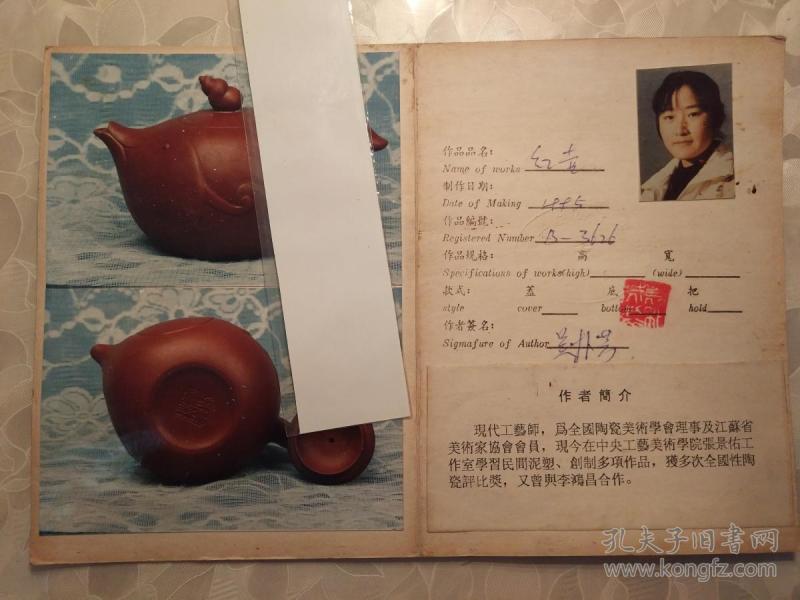 作品品名：
Name of works
制作日期：
Date of Making 1995
作品編號：
Registered Number B-3626
作品规格： 高 寬
Specifications of works(high) (wide)
款式： 蓋 底 把
style cover bottom hold
作者簽名：
Sigmafure of Author
作者簡介
現代工藝師，爲全國陶瓷美術學會理事及江蘇省
美術家協會會員，現今在中央工藝美術學院張景佑工
作室學習民間泥塑、創制多項作品，獲多次全國性陶
瓷評比獎，又曾與李鴻昌合作。
孔夫子旧书网
www.kongfz.com